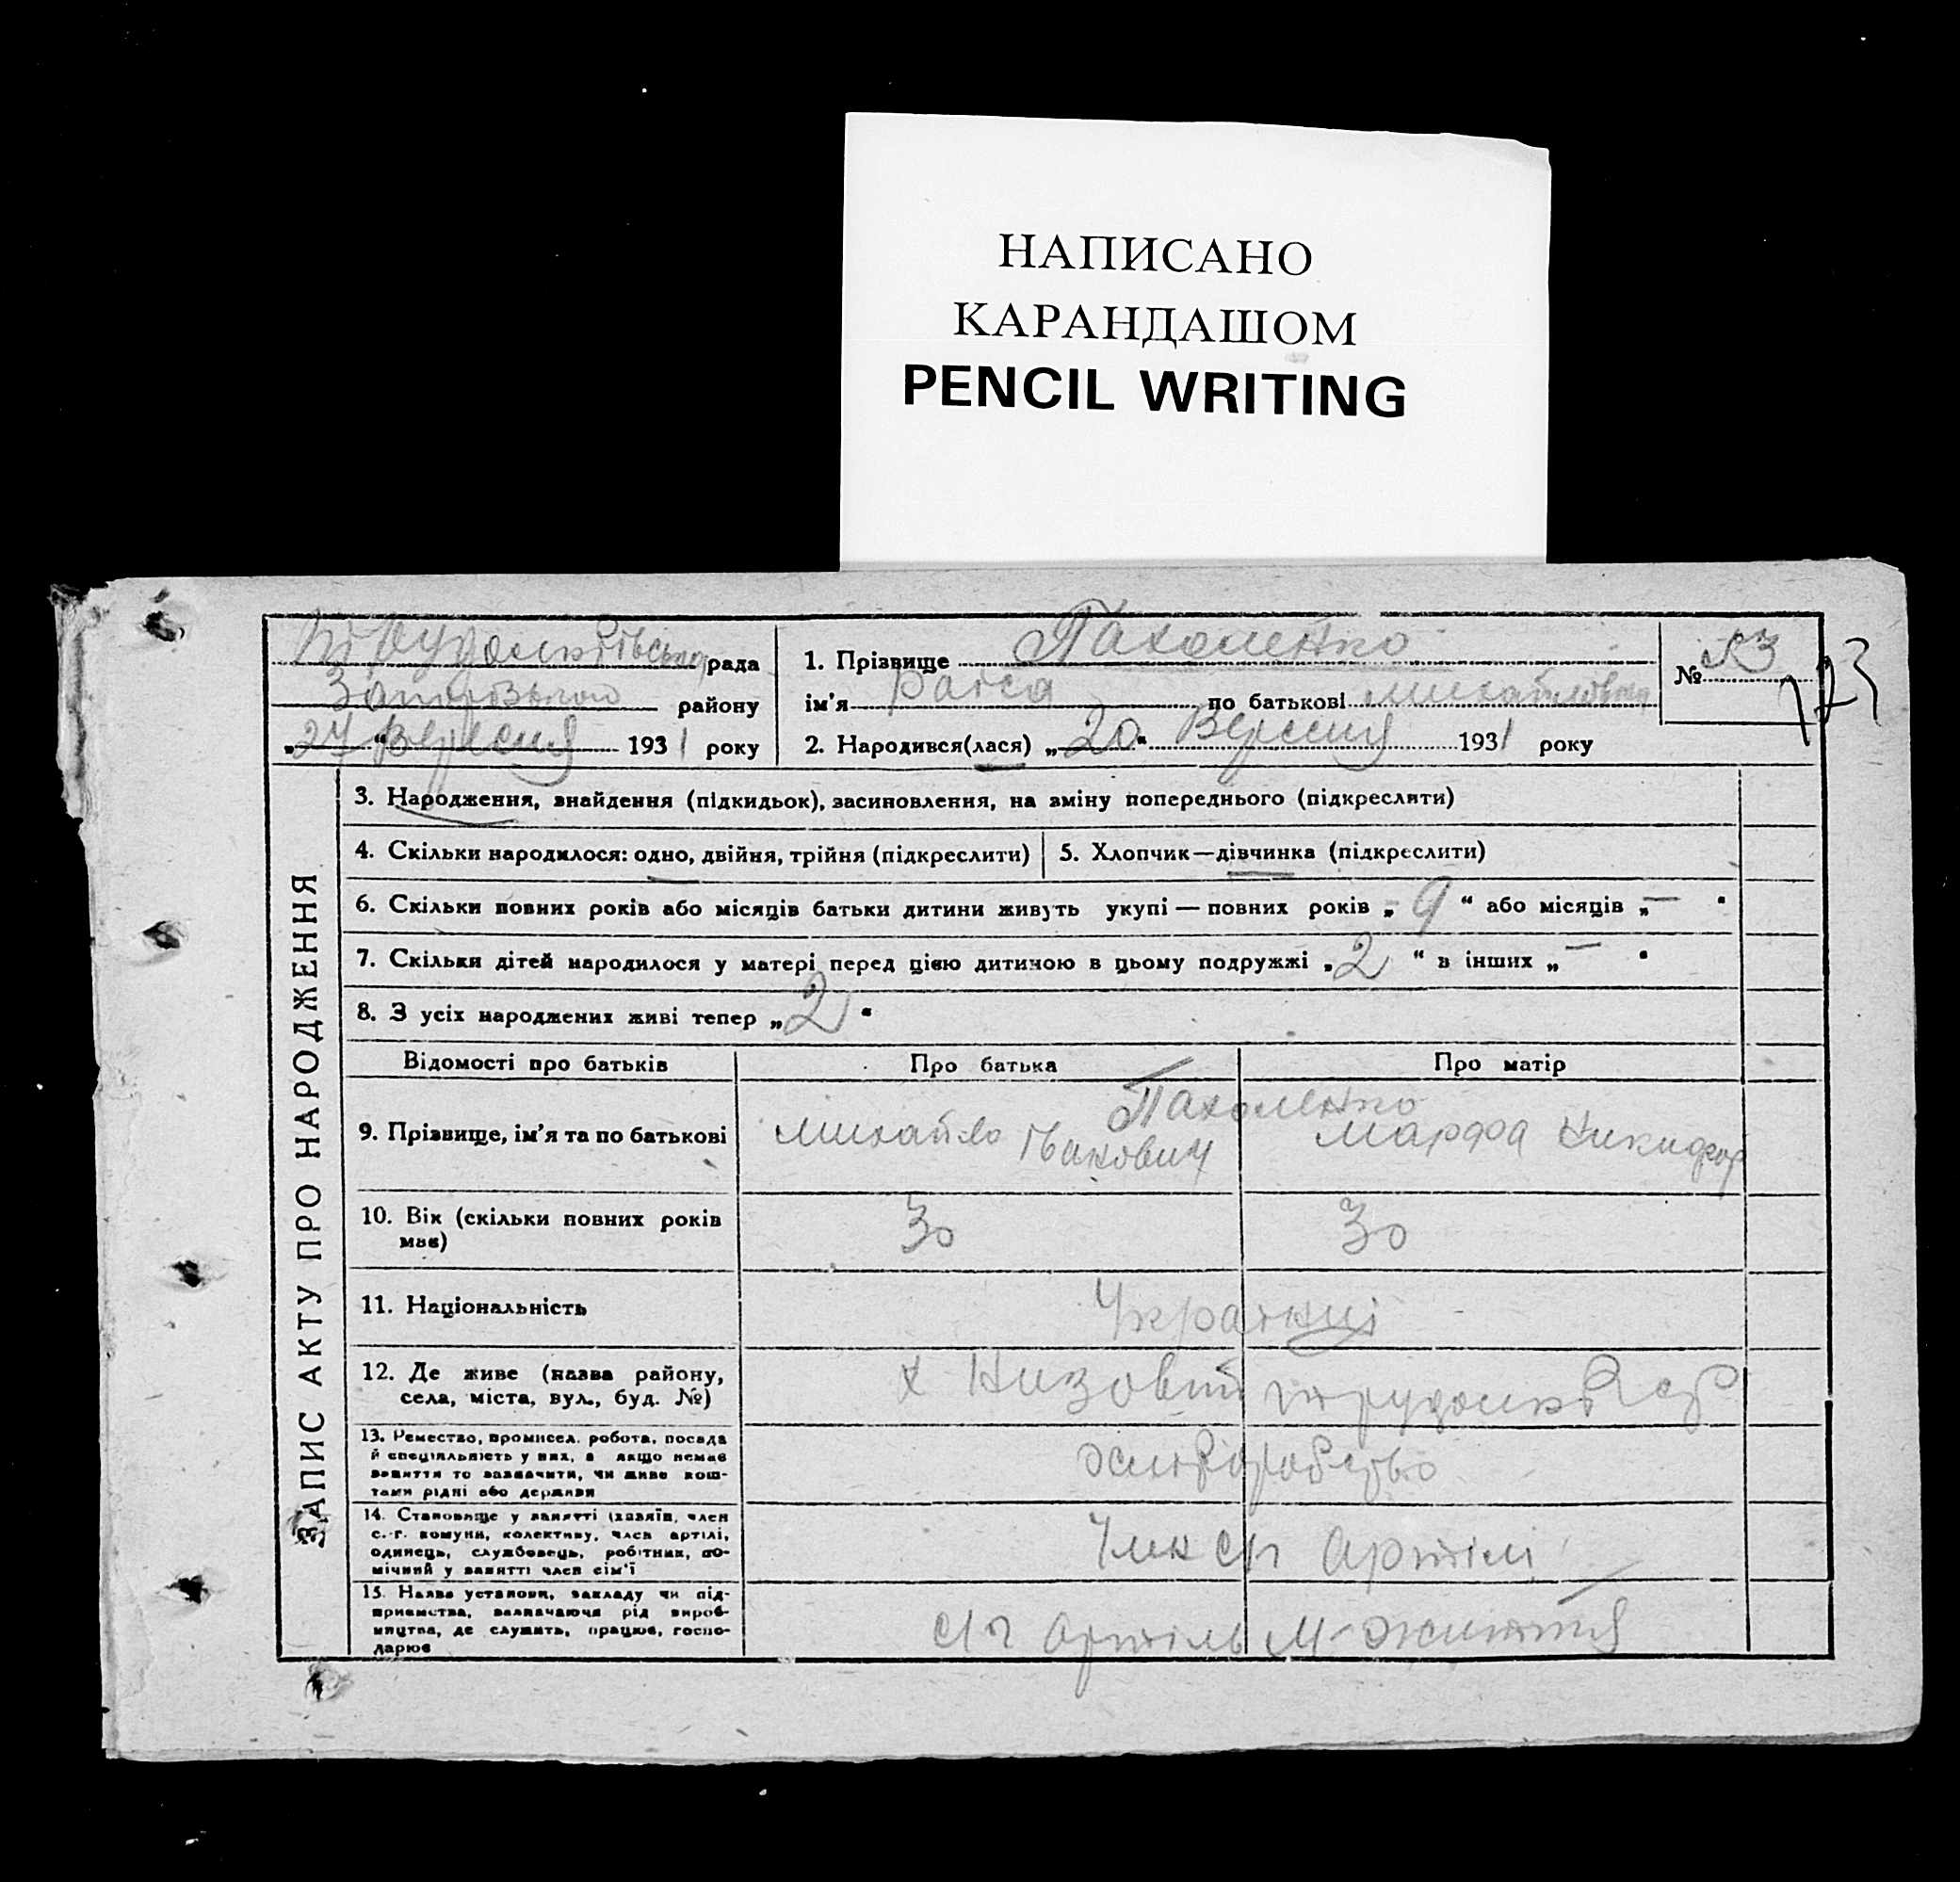 НАПИСАНО
КАРАНДАШОМ
PENCIL WRITING
рада
району
„24“ Вересня 1931 року
1. Прізвище Пахоменко
ім’я Раїса по батькові Михайловна
2. Народився(лася) „20“ Вересня 1931 року
№ 53
123
ЗАПИС АКТУ ПРО НАРОДЖЕННЯ
3. Народження, знайдення (підкидьок), засиновлення, на зміну попереднього (підкреслити)
4. Скільки народилося: одно, двійня, трійня (підкреслити)
5. Хлопчик—дівчинка (підкреслити)
6. Скільки повних років або місяців батьки дитини живуть укупі — повних років „9“ або місяців „—“
7. Скільки дітей народилося у матері перед цією дитиною в цьому подружжі „2“ в інших „—“
8. З усіх народжених живі тепер „2“
Відомості про батьків
Про батька
Про матір
9. Прізвище, ім’я та по батькові
Пахоменко
Михайло Іванович
Марфа Никифор
10. Вік (скільки повних років
має)
30
30
11. Національність
Українці
12. Де живе (назва району,
села, міста, вул., буд. №)
х Низовий
13. Ремество, промисел. робота, посада
й спеціяльність у них, а якщо немає
заняття то зазначити, чи живе кош-
тами рідні або держави
хліборобство
14. Становище у занятті (хазяїн, член
с.-г. комуни, колективу, член артілі,
одинець, службовець, робітник, по-
мічний у занятті член сім’ї
Член с/г Артілі
15. Назва установи, закладу чи під-
приємства, зазначаючи рід вироб-
ництва, де служить, працює, госпо-
дарює
с/г Артіль М-Життя